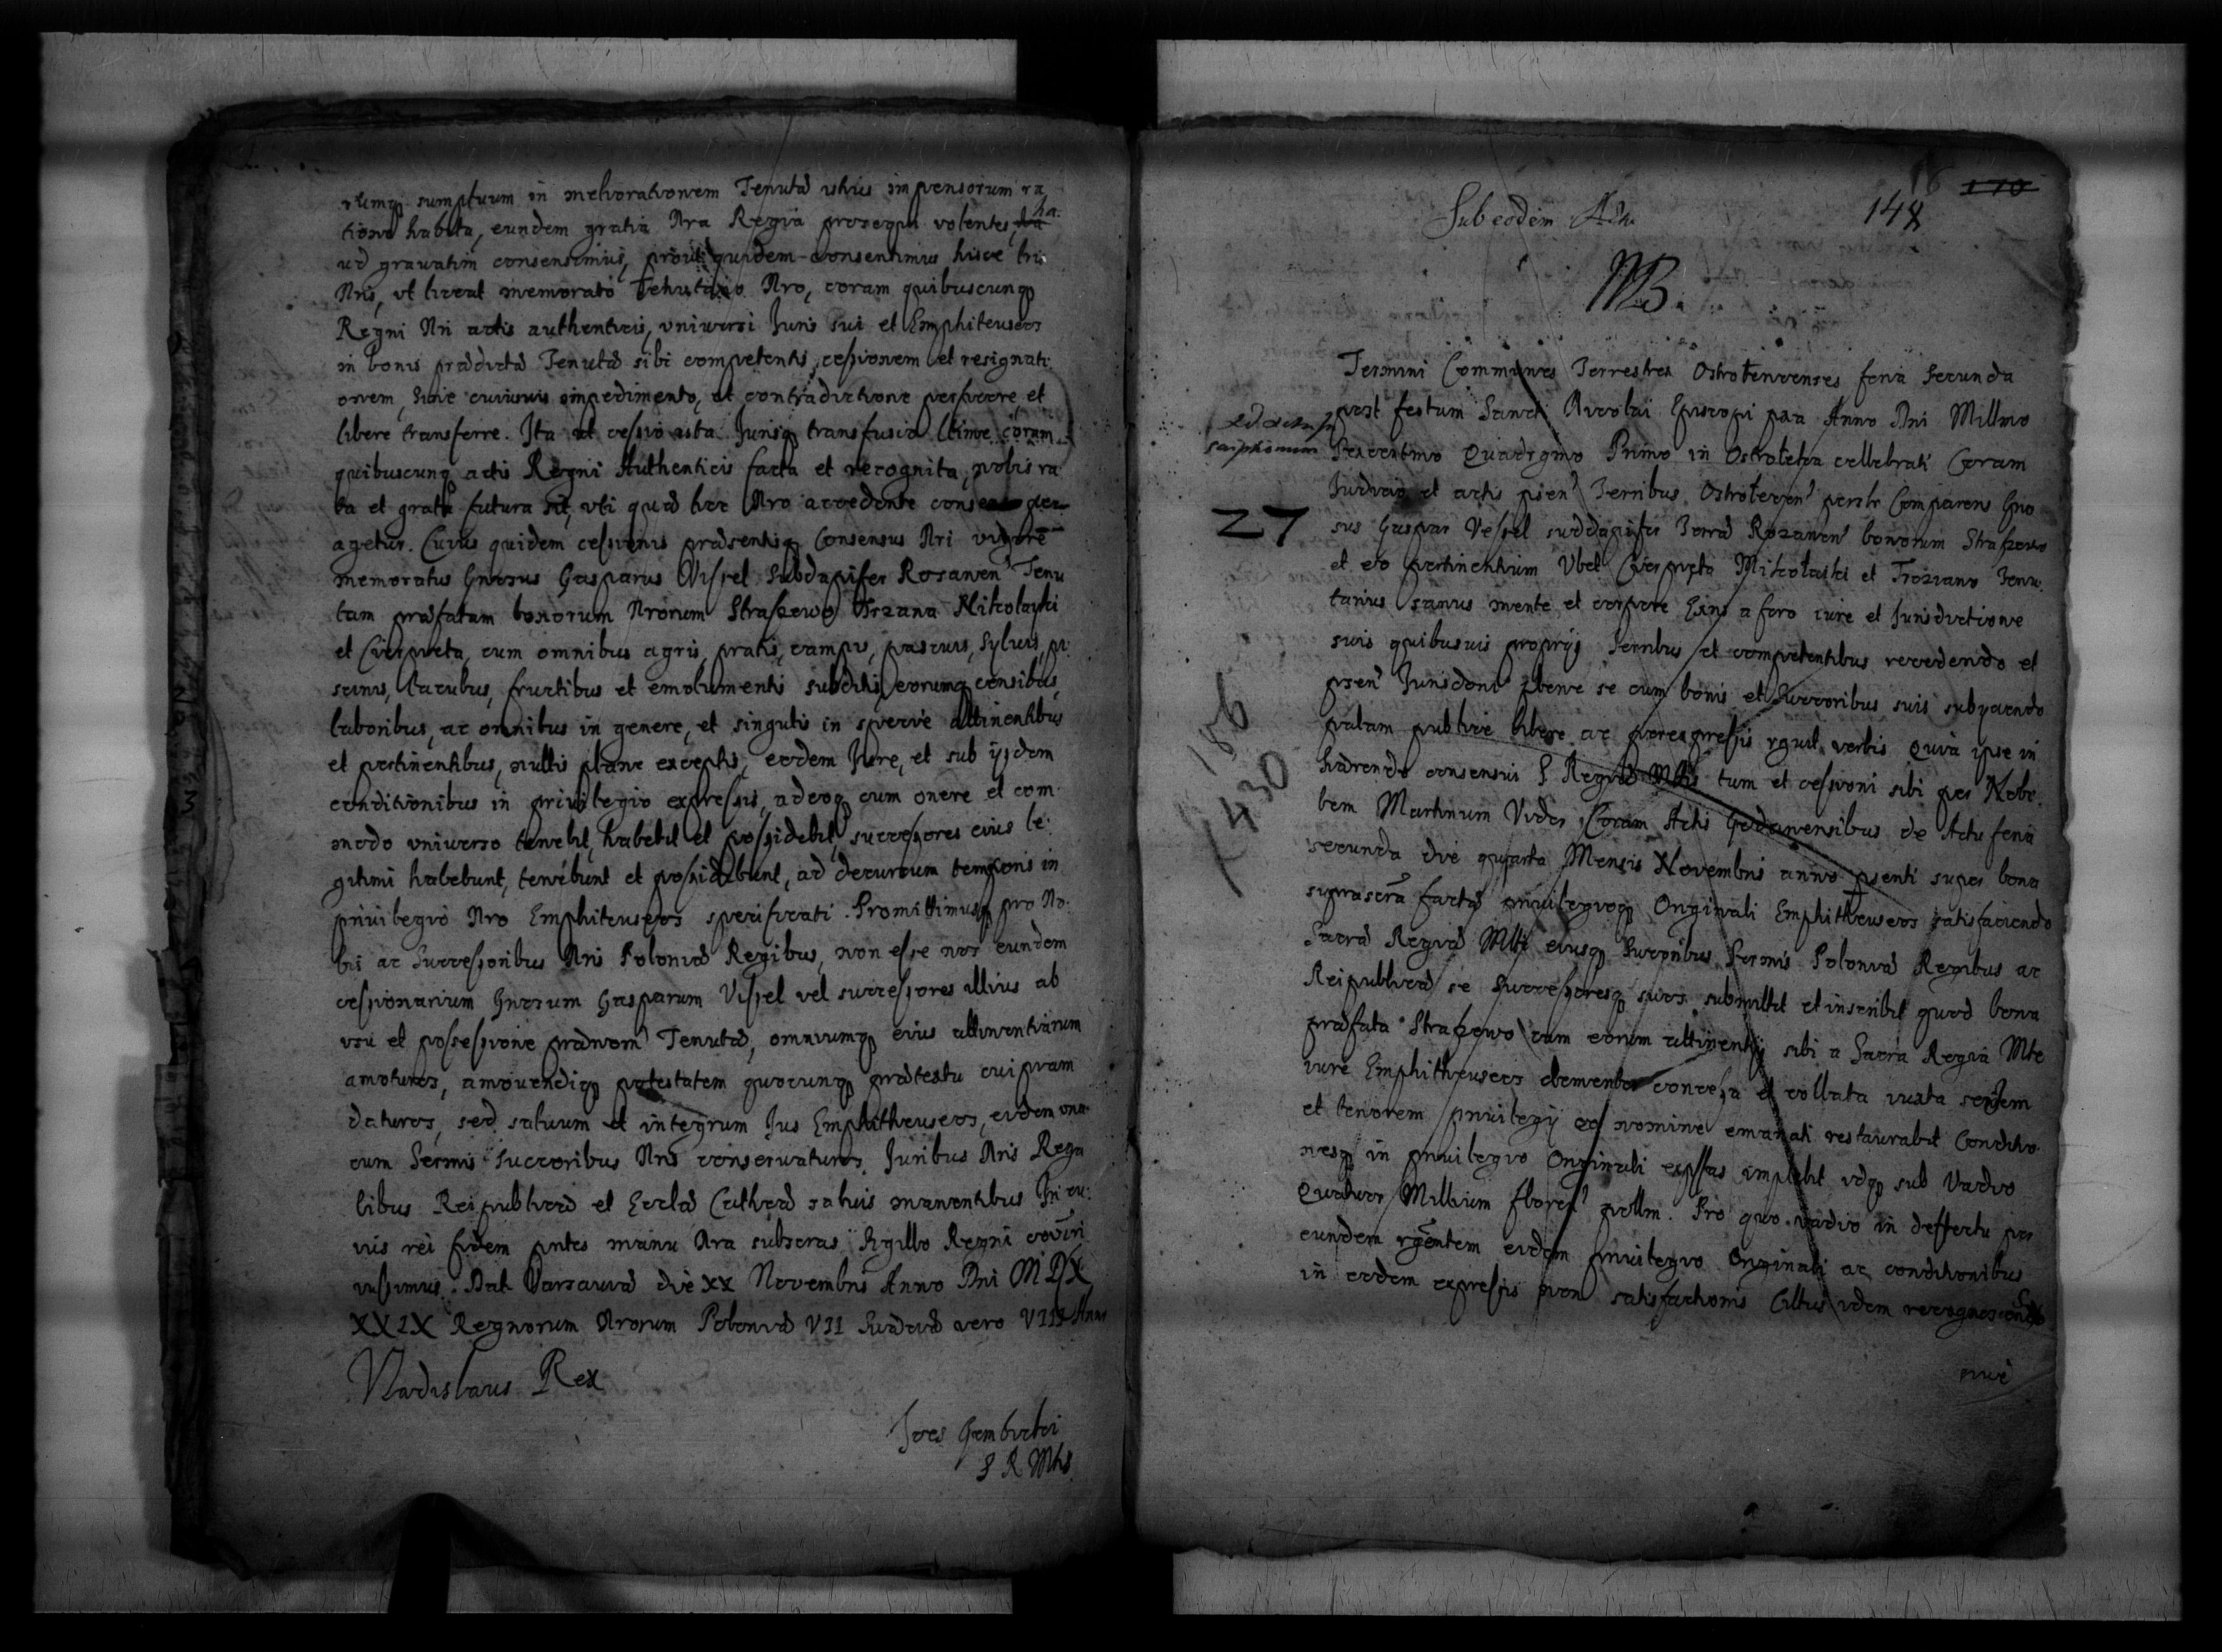 rumq sumptuum in meliorationem Tenutæ istius impensorum ra
tione habita, eundem gratia Nra Regia prosequi volentes, ha
ud grauatim consensimus, prout quidem consentimus hisce lris
Nris, vt liceat memorato Tenutario Nro, coram quibuscunq
Regni Nri actis authenticis, vniuersi Juris sui et Emphiteuseos
in bonis prædictæ Tenutæ sibi competentis, cessionem et resignati
onem, sine cuiusuis impedimento, et contradictione perficere, et
libere transferre. Ita vt cessio ista Jurisq transfusio coram
quibuscunq actis Regni Authenticis facta et recognita, nobis ra
ta et grata futura sit, vti quæ hoc Nro accedente consensu per
agetur. Cuius quidem cessionis præsentisq Consensus Nri vigore
memoratus Gnosus Gasparus Vessel Subdapifer Rosanen Tenu
tam præfatam bonorum Nrorum Straszewo Trzana Mikolayki
et Cierpieta, cum omnibus agris, pratis, campis, pascuis, syluis, pi
scinis, lacubus, fructibus et emolumentis subditis, eorumq censibus,
laboribus, ac omnibus in genere, et singulis in specie attinentibus
et pertinentibus, nullis plane exceptis, eodem Jure, et sub ijsdem
conditionibus in priuilegio expressis, adeoq cum onere et com
modo vniuerso tenebit, habebit et possidebit, successores eius le
gitimi habebunt, tenebunt et possidebunt, ad decursum temporis in
priuilegio Nro Emphiteuseos specificati. Promittimusq pro No
bis ac Successoribus Nris Poloniæ Regibus, non esse nos eundem
cessionarium Gnosum Gasparum Vessel vel successores illius ab
vsu et possessione prædnom Tenutæ, omniumq eius attinentiarum
amoturos, amouendiq potestatem quocunq prætextu cuipiam
daturos, sed saluum et integrum Jus Emphitheuseos, eidem vna
cum Sermis Succoribus Nris conseruaturos. Juribus Nris Rega
libus Reipublicæ et Ecclæ Catholcæ saluis manentibus In cu
ius rei fidem pntes manu Nra subscras Sigillo Regni coiri
iussimus. Dat Varsauiæ die XX Nouembris Anno Dni MDCX
XXIX Regnorum Nrorum Poloniæ VII Sueciæ vero VIII Anno
Vladislaus Rex
Joes Gembicki
S R Mtis
16 170
148
Sub eodem Actu
NB.
Termini Communes Terrestres Ostrolenenses feria secunda
post festum Sancti Nicolai Episcopi pxa Anno Dni Millmo
scriptionum
Sexcentmo Quadrgmo Primo in Ostroleka cellebrati Coram
Judicio et actis psen Terribus Ostrolenen perstr Comparens Gno
27
sus Gaspar Vessel subdapifer Terræ Rozanen bonorum Straszewo
et eo pertinentium Vbet Cierpięta Mikołaiki et Trozano Tenu
tarius sanus mente et corpore Exns a foro iure et Jurisdictione
suis quibusuis proprijs Terribus et competentibus recedendo et
psen Jurisdoni plene se cum bonis et Succoribus suis subyciendo
186
palam publice libere ac per expressis rgnit verbis Quia ipse in
430
hærendo consensui S Regiæ Mtis tum et cessioni sibi per Nobi
lem Martinum Vider Coram Actis Gedanensibus de Actu feria
secunda die quarta Mensis Novembris anno psenti super bona
suprascra factæ priuilegioq Originali Emphitheuseos satisfaciendo
Sacræ Regiæ Mtti eiusq Succoribus Sermis Poloniæ Regibus ac
Reipublicæ se successoresq suos submittit et inscribit quod bona
præfata Straszewo cum eorum attinentijs sibi a Sacra Regia Mte
iure Emphitheuseos clementer concessa et collata iuxta seriem
et tenorem priuilegij eo nomine emanati restaurabit Conditio
nesq in priuilegio Originali expssas implebit idq sub Vadio
Quatuor Millium floren pollm. Pro quo vadio in deffectu per
eundem rgntem eidem priuilegio Originali ac conditionibus
in eodem expressis non satisfactionis Citus idem recognoscens Siue
niue